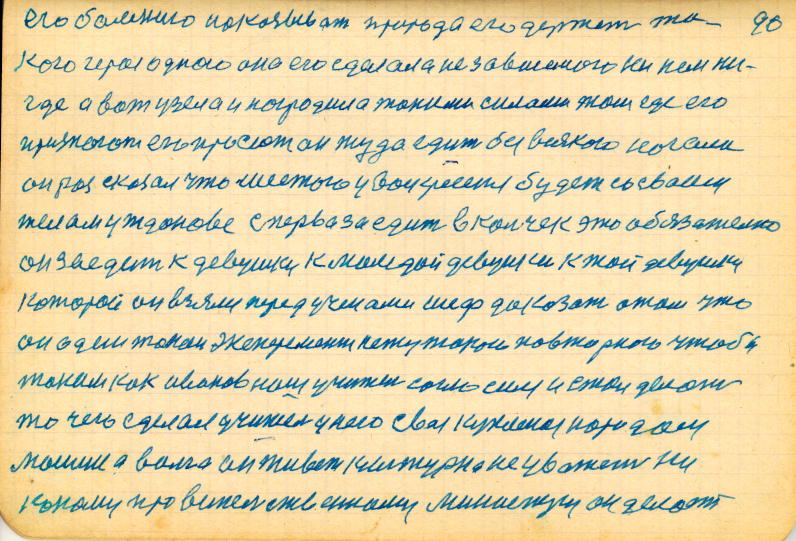 его болезнию показыват природа его держет та- 90
кого героя одного она его сделала независемого ни кем ни-
где а вот узела и погродила такими силами там где его
признают его просют он туда едит без всякого
он россказал что шестого у воскресения будет со своим
телам у жданове сперва заедит в колчек это обязателно
он заедит к девушки к моледой девушки к той девушки
которой он взяли перед учеными шеф доказат о том что
он один такой экеперемент нету такого повтарного чтобы
таким как иванов наш учител согласилси и стал делат
то чего сделал учител у него свая кухня порядком
машина волга он живет културна не уважает ни
какому правителственному министру он делает